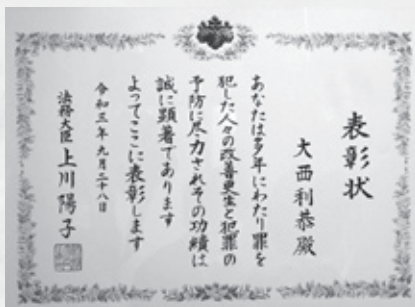 表彰状
大西利恭殿
あなたは多年にわたり罪を
犯した人々の改善更生と犯罪の
予防に尽力されその功績は
誠に顕著であります
よってここに表彰します
令和三年九月二十八日
法務大臣 上川陽子